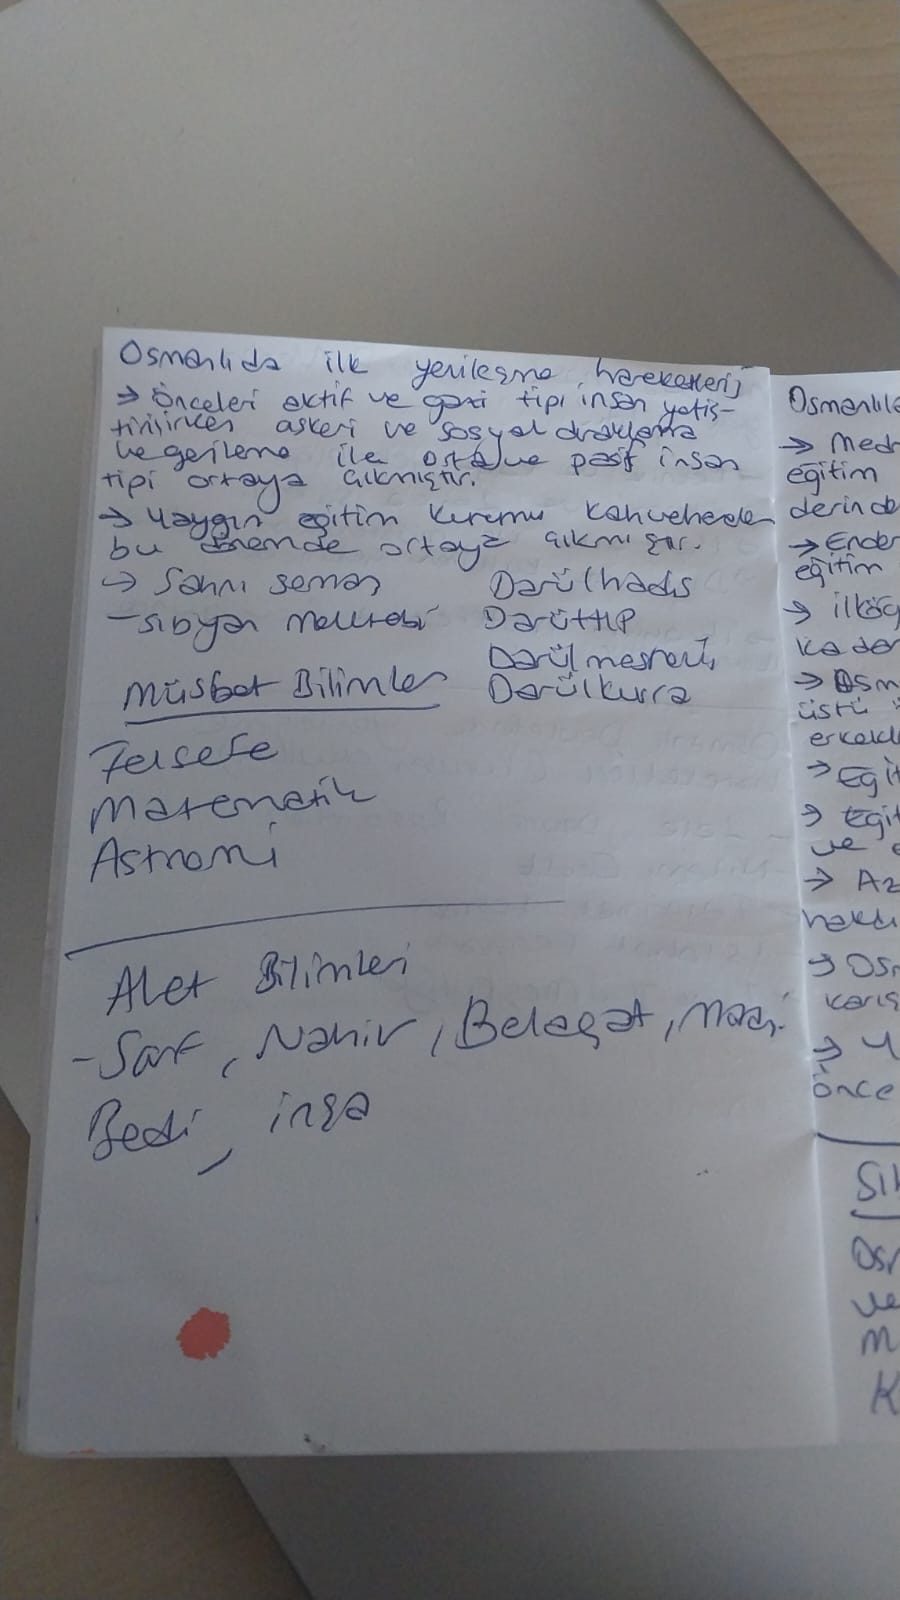 Osmanlıda ilk yenileşme hareketleri
→ Önceleri aktif ve gazi tipi insan yetiş-
tirilirken askeri ve sosyal duraklama
ve gerileme ile ve pasif insan
tipi ortaya çıkmıştır.
→ Yaygın eğitim kurumu kahvehaneler
bu dönemde ortaya çıkmıştır.
→ Sahnı seman Darülhadis
- Sıbyan mektebi Darüttıp
Darülmesnevi
Müsbet Bilimler Darülkurra
Felsefe
Matematik
Astronomi
Alet Bilimleri
- Sarf, Nahiv, Belagat,
Bedi, inşa
Osmanlıla
→ Medr
eğitim
derinde
→ Ender
eğitim
→ ilköğ
kader
→ Osm
üstü
erkekl
→ Eğit
→ Eğit
ve
→ Az
→ Osm
karış
→ Y
önce
Sı
Osr
ve
m
K